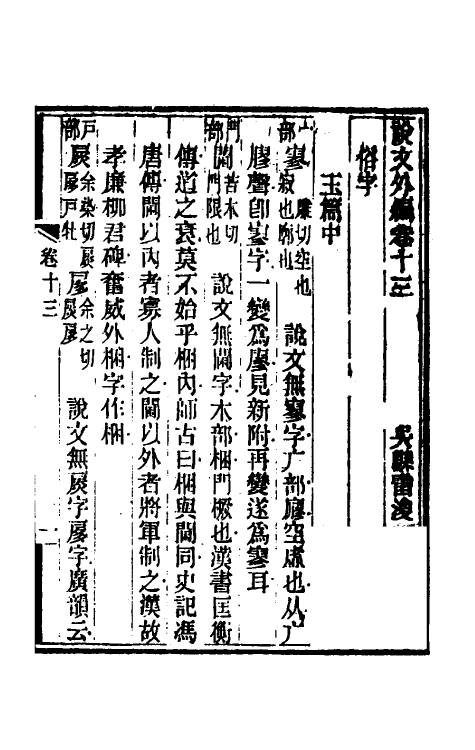 說文外編卷十三 吳縣雷浚
俗字
玉篇中
宀部 寥 力雕切空也寂也廓也 說文無寥字广部廫空虛也从广
膠聲卽寥字一變爲廖見新附再變遂爲寥耳
門部 閫 苦本切門限也 說文無閫字木部梱門橛也漢書匡衡
傳道之衰莫不始乎梱內師古曰梱與閫同史記馮
唐傳閫以內者寡人制之閫以外者將軍制之漢故
孝廉柳君碑奮威外梱字作梱
戶部 扊 余染切扊扅戶牡 扅 余之切扊扅 說文無扊字扅字廣韻云
卷十三 一